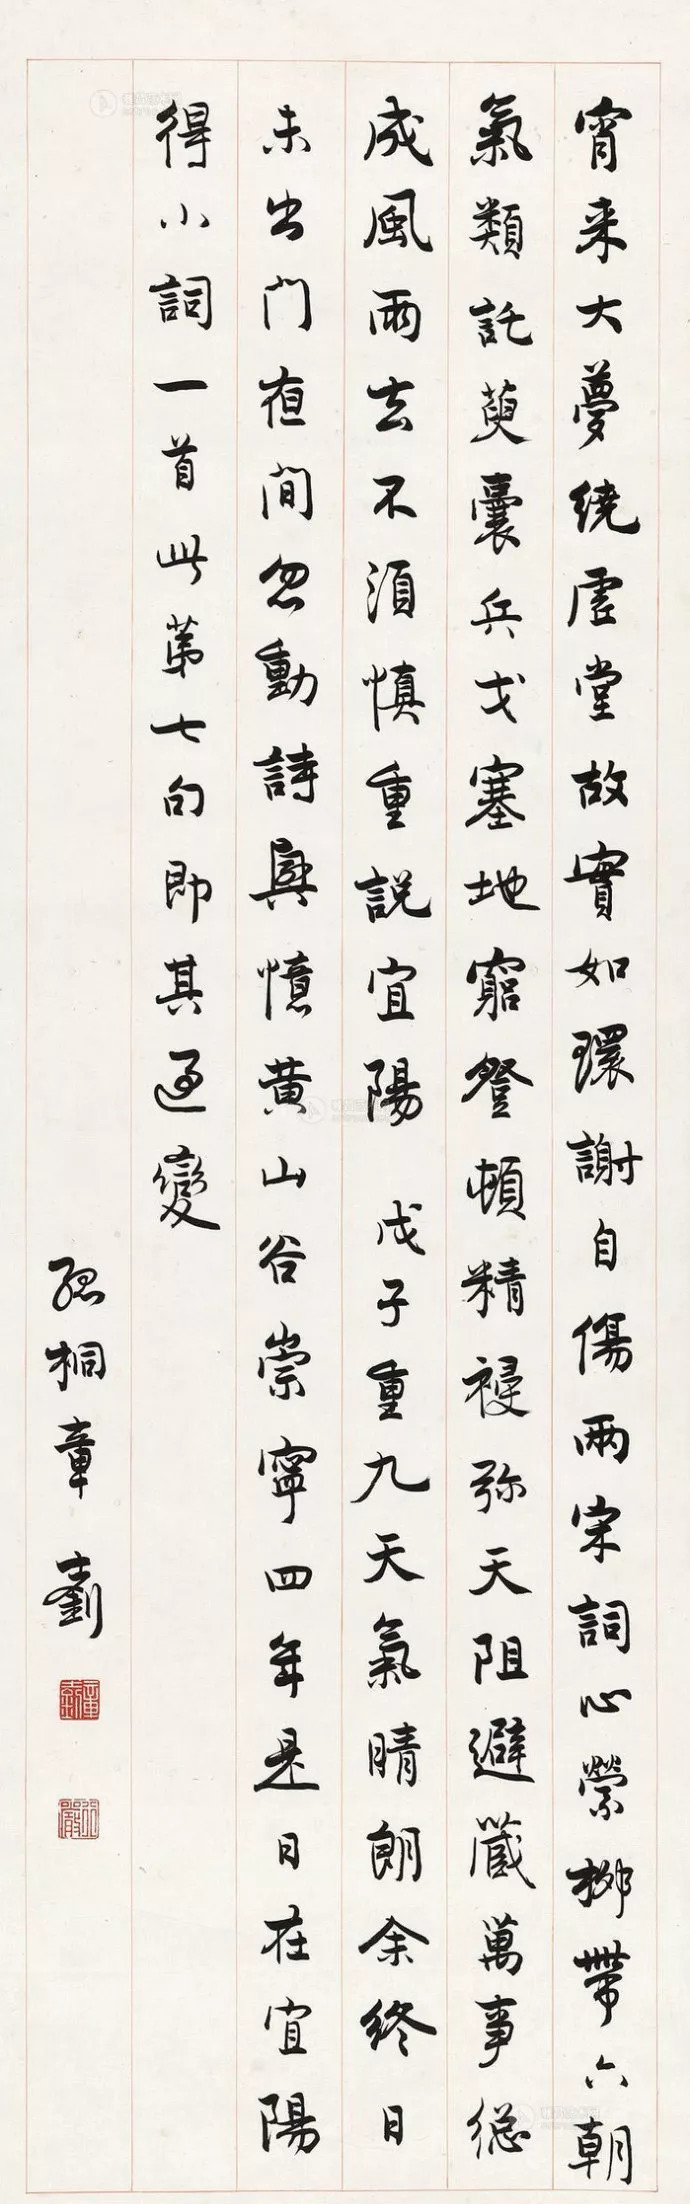 宵来大夢繞虛堂故實如環謝自傷兩宋詞心縈柳帶六朝
氣類託萸囊兵戈塞地窮登頓精祲弥天阻避藏萬事總
成風雨去不須慎重說宜陽 戊子重九天氣晴朗余終日
未出門夜間忽動詩興憶黄山谷崇寧四年是日在宜陽
得小詞一首此第七句即其通變
孤桐章士釗